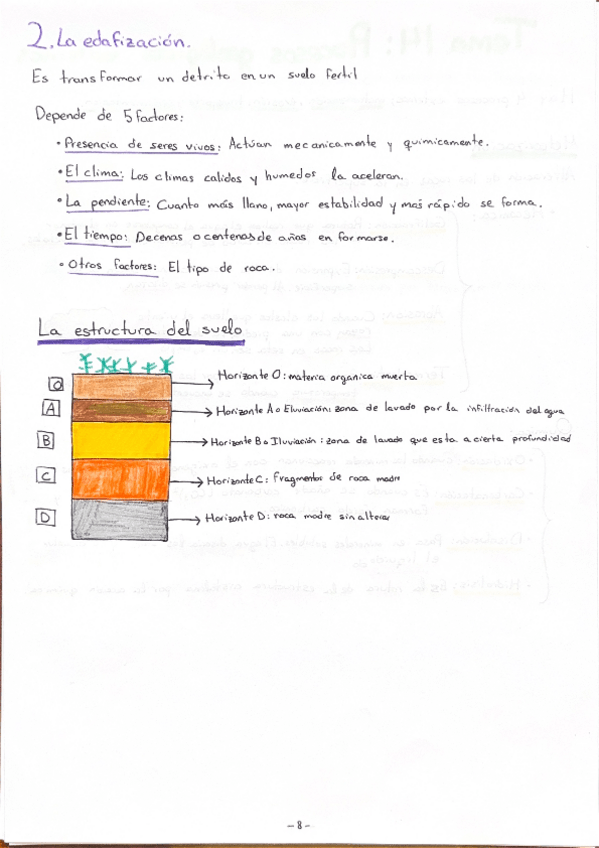 2. La edafización.
Es transformar un detrito en un suelo fertil
Depende de 5 factores:
• Presencia de seres vivos: Actúan mecanicamente y químicamente.
• El clima: Los climas calidos y humedos la aceleran.
• La pendiente: Cuanto más llano, mayor estabilidad y mas rápido se forma.
• El tiempo: Decenas o centenas de años en formarse.
• Otros factores: El tipo de roca.
La estructura del suelo
O → Horizonte O: materia organica muerta
A → Horizonte A o Eluviación: zona de lavado por la infiltración del agua
B → Horizonte B o Iluviación: zona de lavado que esta a cierta profundidad
C → Horizonte C: fragmentos de roca madre
D → Horizonte D: roca madre sin alterar
- 8 -